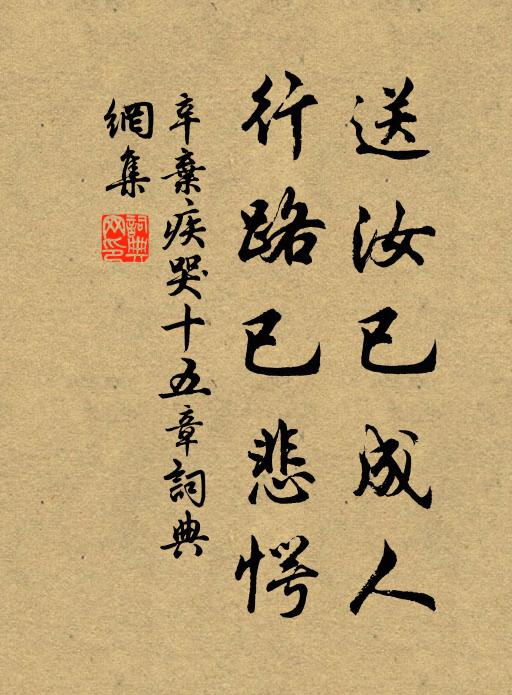 送汝已成人
行路已悲愕
辛棄疾哭十五章詞典
網集
詞典
網印